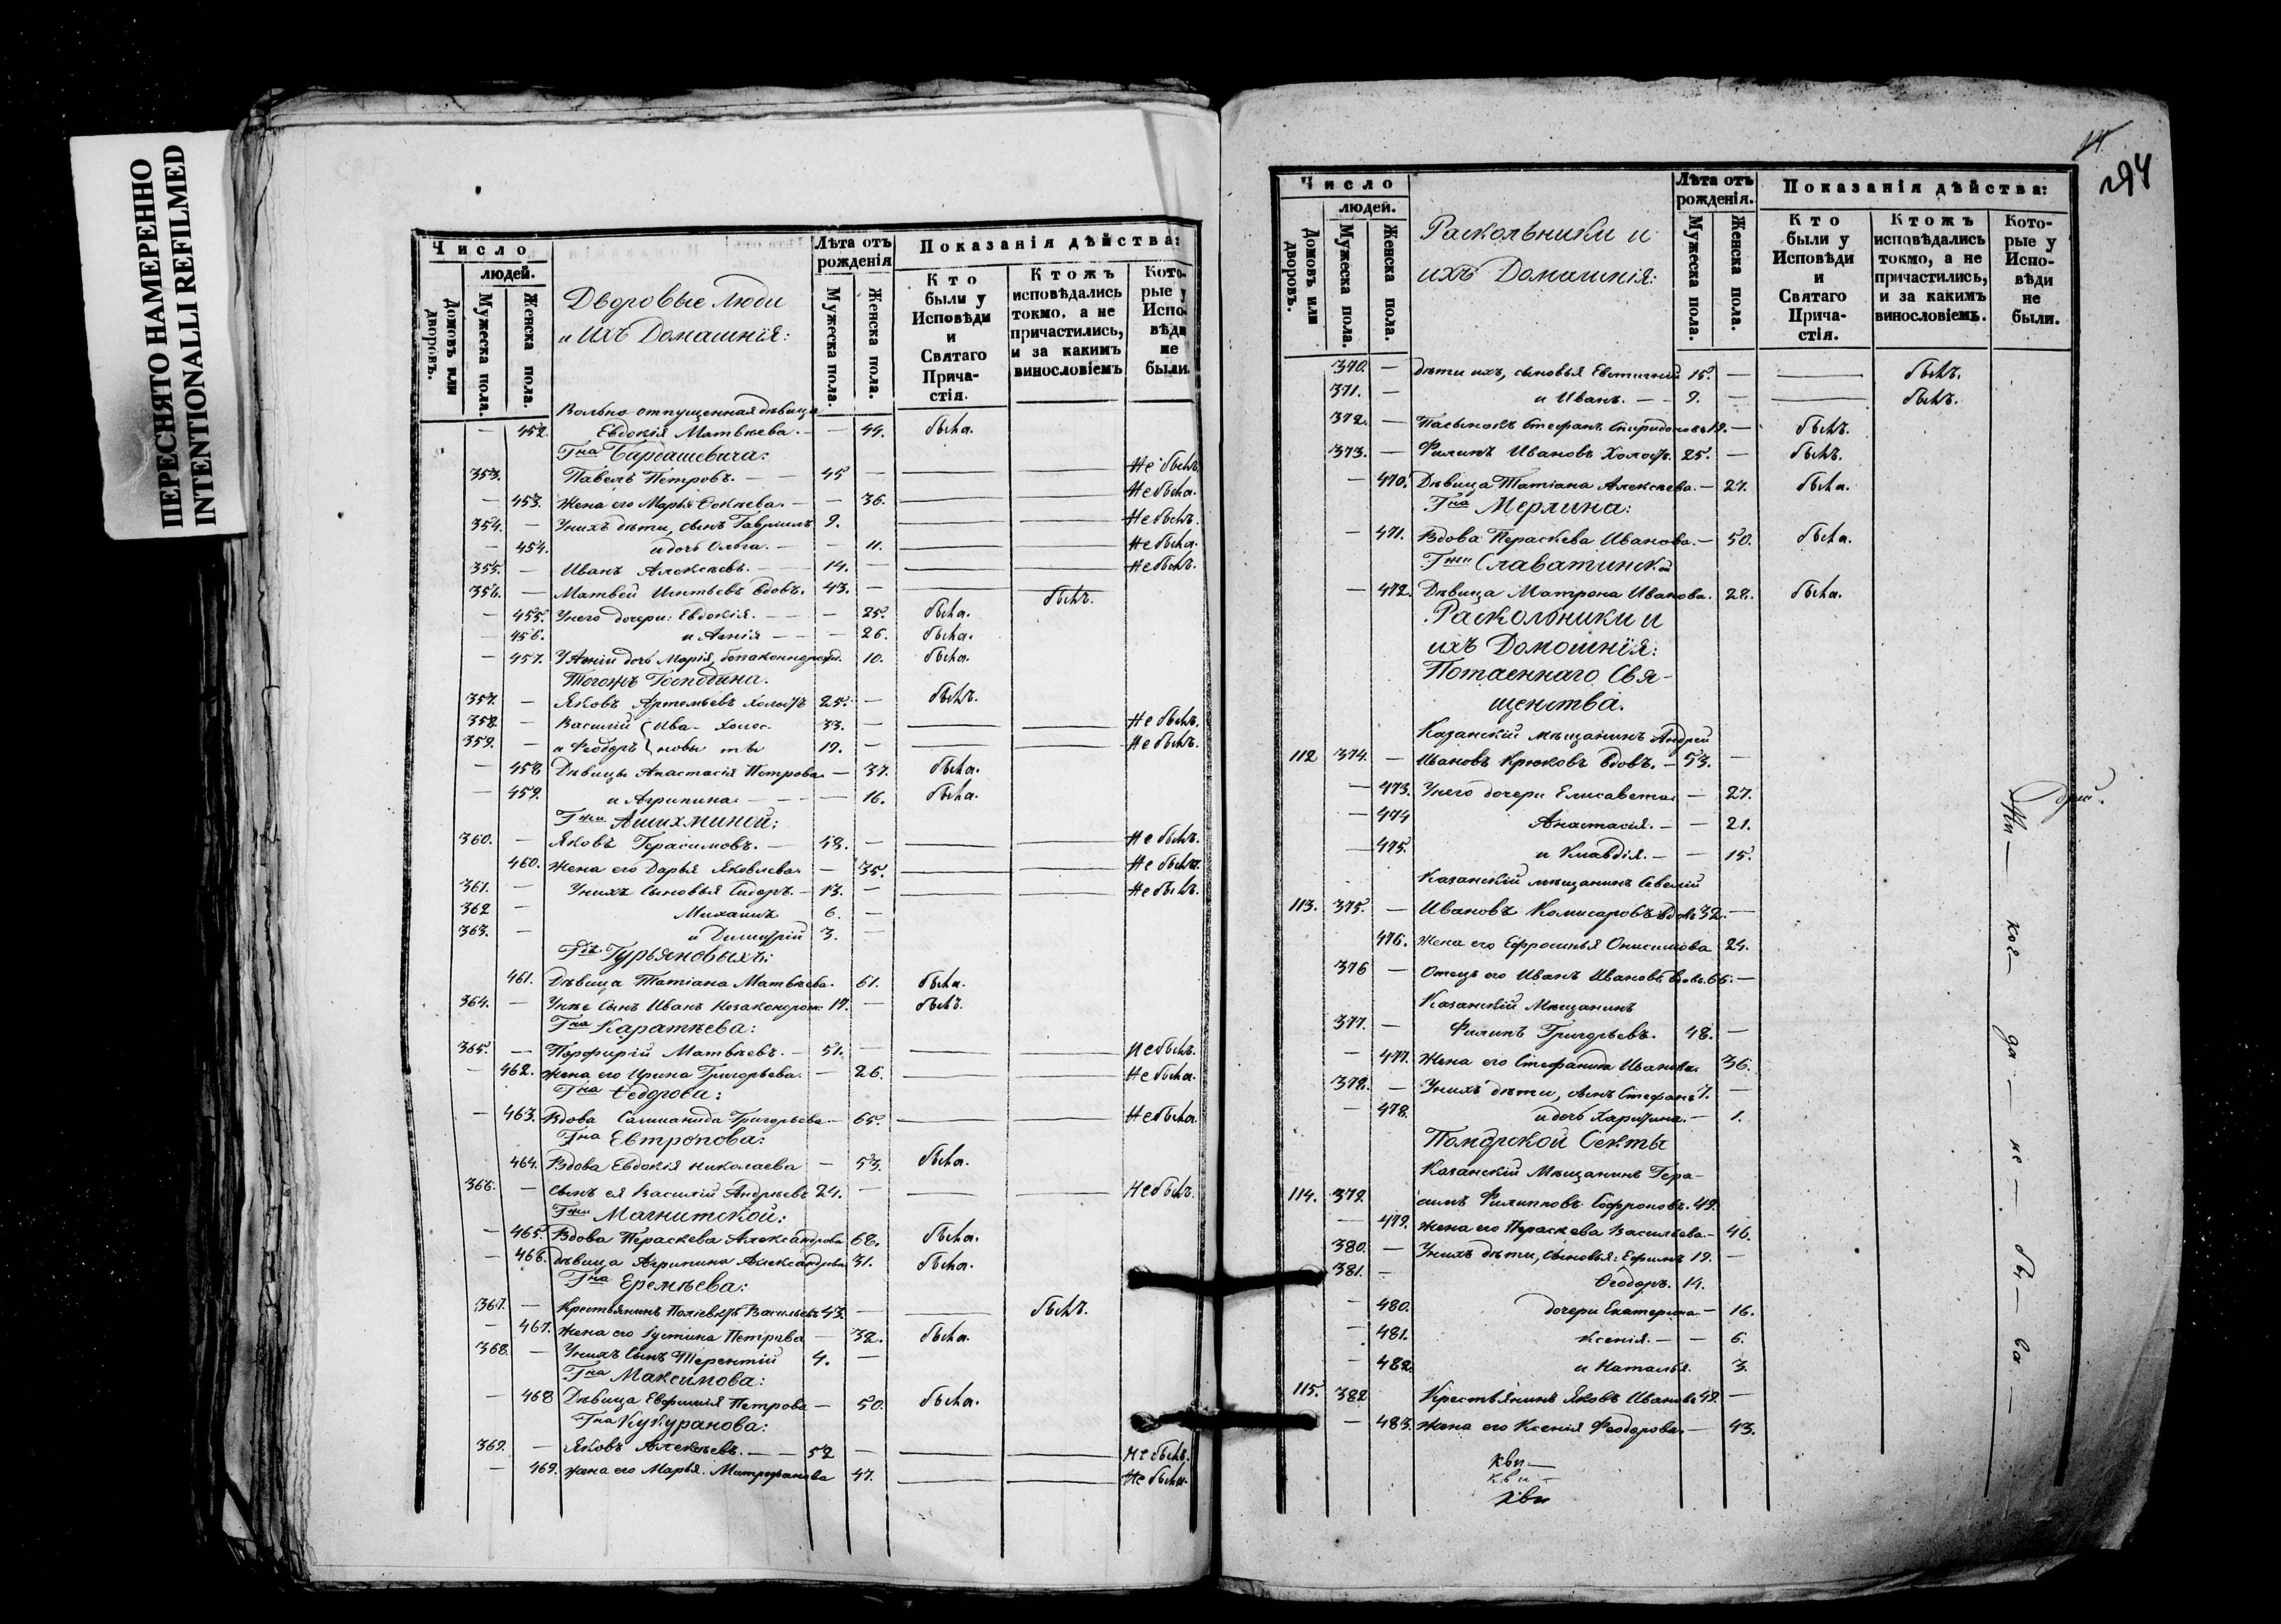 ПЕРЕСНЯТО НАМЕРЕННО
INTENTIONALLI REFILMED
Число
людей.
Домовъ или дворовъ.
Мужеска пола.
Женска пола.
Дворовые люди
и ихъ Домашнія:
Лѣта отъ рожденія
Мужеска пола.
Женска пола.
Показанія дѣйства:
Кто были у Исповѣди и Святаго Прича-стія.
Ктожъ исповѣдались токмо, а не причастились, и за какимъ винословіемъ
Кото-рые у Испо-вѣди не были.
Вольно отпущенная дѣвица
— 452. Евдокія Матвѣева. — — 44. была.
Гна Барташевича:
353. Павелъ Петровъ. — 45 — Не былъ
— 453. Жена его Марья — 36. Не была.
354. — У нихъ дѣти, сынъ Гавріилъ 9. Не былъ.
— 454. и дочь Ольга. — — 11. Не была.
355. — Иванъ Алексѣевъ. — 14. — Не былъ.
356. — Матвей вдовъ. 43. — былъ.
— 455. У него дочери: Евдокія. — — 25. была.
— 456. и Агнія — — — 26. была.
— 457. У Агніи дочь Марія, 10. была.
Тогожъ Господина.
357. — Яковъ Артемьевъ холостъ 25. — былъ.
358. — Василій Ива- холос- 33. — Не былъ.
359. — и Феодоръ новы ты 19. — Не былъ.
— 458 Дѣвицы Анастасія Петрова — 37. была.
— 459. и Агрипина. — — — 16. была.
Гжи Ашихминой:
360. — Яковъ Герасимовъ. — 48. — Не былъ.
460. Жена его Дарья Яковлева — 35. Не была.
361. — У нихъ сыновья Сидоръ. — 13. — Не былъ.
362 — Михаилъ 6. —
363. — и Димитрій 3. —
Гдъ Гурьяновыхъ:
461. Дѣвица Татіана Матвѣева. 61. была.
364. — У нее сынъ Иванъ незаконорож. 17. — былъ.
Гна Каратѣева:
365. — Порфирій Матвѣевъ. — 51. — Не былъ.
— 462. Жена его Ирина Григорьева. — 26. Не была.
Гна Ѳедорова:
— 463. Вдова Григорьева — 65. Не была.
Гна Евтропова:
464. Вдова Евдокія Николаева — 53. была.
366. — Сынъ ея Василій Андрѣевъ 24. — Не былъ.
Гжи Магнитской:
— 465. Вдова Пераскева Александрова 68. была.
— 466. Дѣвица Агрипина Александрова 31. была.
Гна Еремѣева:
367. — Крестьянинъ Поліевктъ Васильевъ 43. — былъ.
— 467. Жена его Іустина Петрова — 32. была.
368. — У нихъ сынъ Терентій 4. —
Гна Максимова:
— 468 Дѣвица Евфимія Петрова — 50. была.
Гна Кукуранова:
369. — Яковъ Алексѣевъ. — — 52 — Не былъ.
— 469. Жена его Марья Митрофанова 47. Не была.
294
Число
людей.
Домовъ или дворовъ.
Мужеска пола.
Женска пола.
Раскольники и
ихъ Домашнія:
Лѣта отъ рожденія.
Мужеска пола.
Женска пола.
Показанія дѣйства:
Кто были у Исповѣди и Святаго Прича-стія.
Ктожъ исповѣдались токмо, а не причастились, и за какимъ винословіемъ.
Кото-рые у Испо-вѣди не были.
370. — Дѣти ихъ, сыновья Евстигній 15. — былъ.
371. — и Иванъ. — — 9. — былъ.
372. — Пасынокъ Стефанъ Спиридоновъ 19. — былъ.
373. — Филипъ Ивановъ Холостъ. 25. — былъ.
— 470. Дѣвица Татіана Алексѣева. — 27. была.
Гна Мерлина:
— 471. Вдова Пераскева Иванова. — 50. была.
Гжи Славатинской
— 472. Дѣвица Матрона Иванова. 28. была.
Раскольники и
ихъ Домошнія:
Потаеннаго Свя-
щенства.
Казанскій мѣщанинъ Андрей
112 374. — Ивановъ Крюковъ вдовъ. — 53. —
— 473. У него дочери Елисавета — 27.
— 474 Анастасія. — — 21.
— 475. и Клавдія. — — 15.
Казанскій мѣщанинъ
113. 375. — Ивановъ Комисаровъ 32. —
476. Жена его Ефросинья Онисимова 24.
376 — Отецъ его Иванъ Ивановъ вдовъ. 66. —
Казанскій Мѣщанинъ
377. — Филипъ Григорьевъ. 48. —
— 477. Жена его Стефанида Иванова. 36.
378. — У нихъ дѣти, сынъ Стефанъ 7. —
— 478. и дочь Харитина. — 1.
Поморской Секты
Казанскій Мѣщанинъ Гера-
114. 379. симъ Филипповъ Софроновъ. 49.
— 479. Жена его Пераскева Васильева. — 46.
380. — У нихъ дѣти, сыновья: Ефимъ 19. —
381. — Ѳеодоръ. 14.
— 480. дочери Екатерина — 16.
— 481. Ксенія. — — 6.
— 482. и Наталья. 3.
115. 382 Крестьянинъ Яковъ Ивановъ 49. —
— 483. Жена его Ксенія Феодорова. — 43.
Ни — ког — да — не — бы — ва —